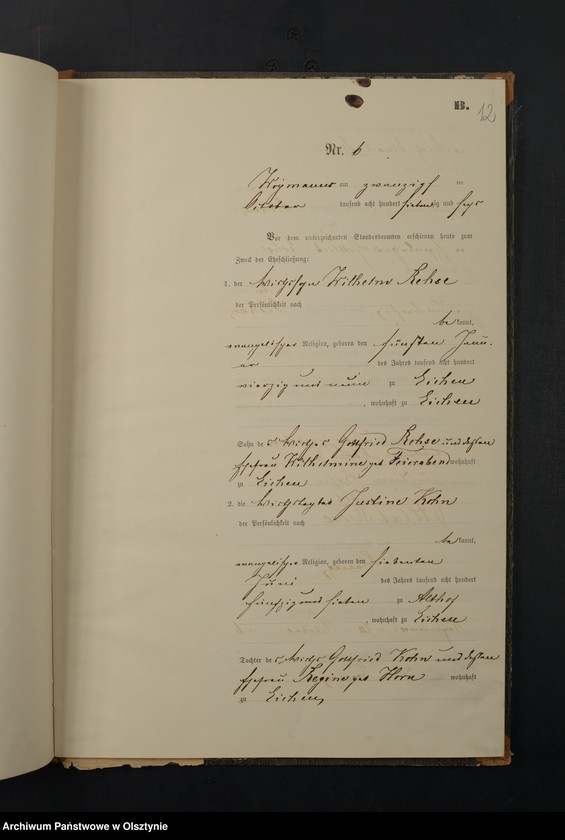 B.
12
Nr. 6
am zwanzigsten
October tausend acht hundert siebenzig und sechs
Vor dem unterzeichneten Standesbeamten erschienen heute zum
Zweck der Eheschließung:
1. der Wilhelm Rehse
der Persönlichkeit nach
be kannt,
evangelischer Religion, geboren den fünften Janu-
ar des Jahres tausend acht hundert
vierzig und neun zu Eichen
, wohnhaft zu Eichen
Sohn des Wirths Gottfried Rehse und dessen
Ehefrau Wilhelmine geb Feierabend wohnhaft
zu Eichen
2. die Wirthstochter Justine Kohn
der Persönlichkeit nach
be kannt,
evangelischer Religion, geboren den siebenten
Juni des Jahres tausend acht hundert
fünfzig und sieben zu Althof
, wohnhaft zu Eichen
Tochter des Wirths Gottfried Kohn und dessen
Ehefrau Regine geb Horn wohnhaft
zu Eichen,
Archiwum Państwowe w Olsztynie